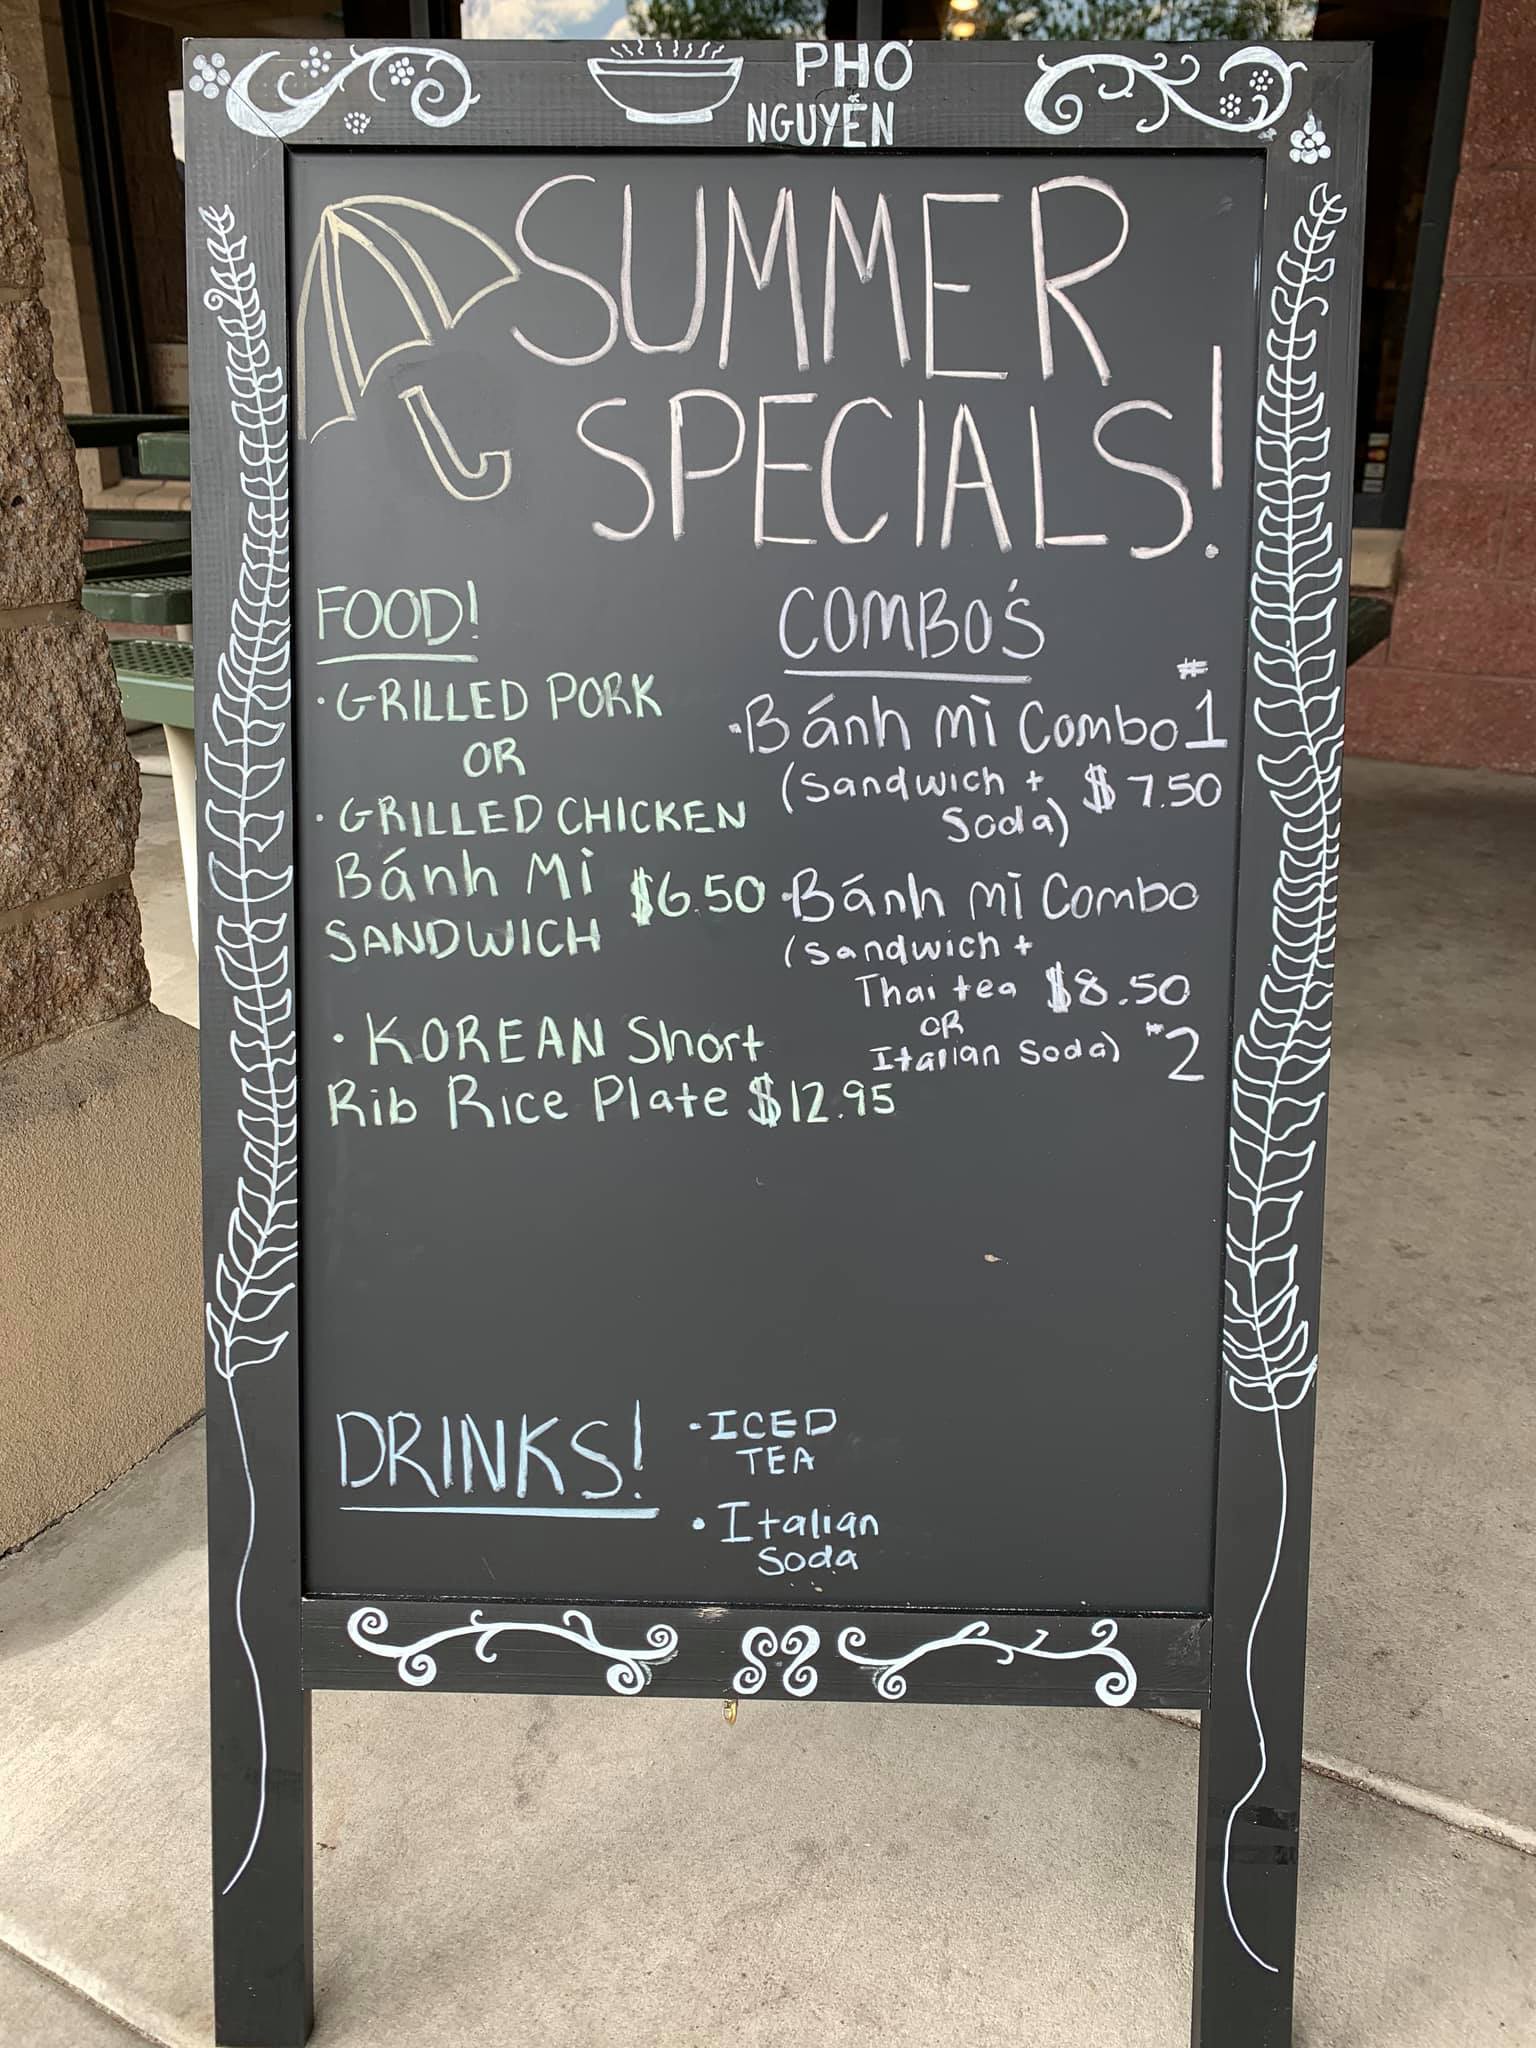 PHỞ
NGUYỄN
SUMMER
SPECIALS!
FOOD!
• GRILLED PORK
OR
• GRILLED CHICKEN
Bánh Mì
SANDWICH $6.50
• KOREAN Short
Rib Rice Plate $12.95
COMBO'S
• Bánh mì Combo #1
(Sandwich + $7.50
Soda)
• Bánh mì Combo
(Sandwich +
Thai tea $8.50
OR
Italian Soda) #2
DRINKS!
• ICED
TEA
• Italian
Soda